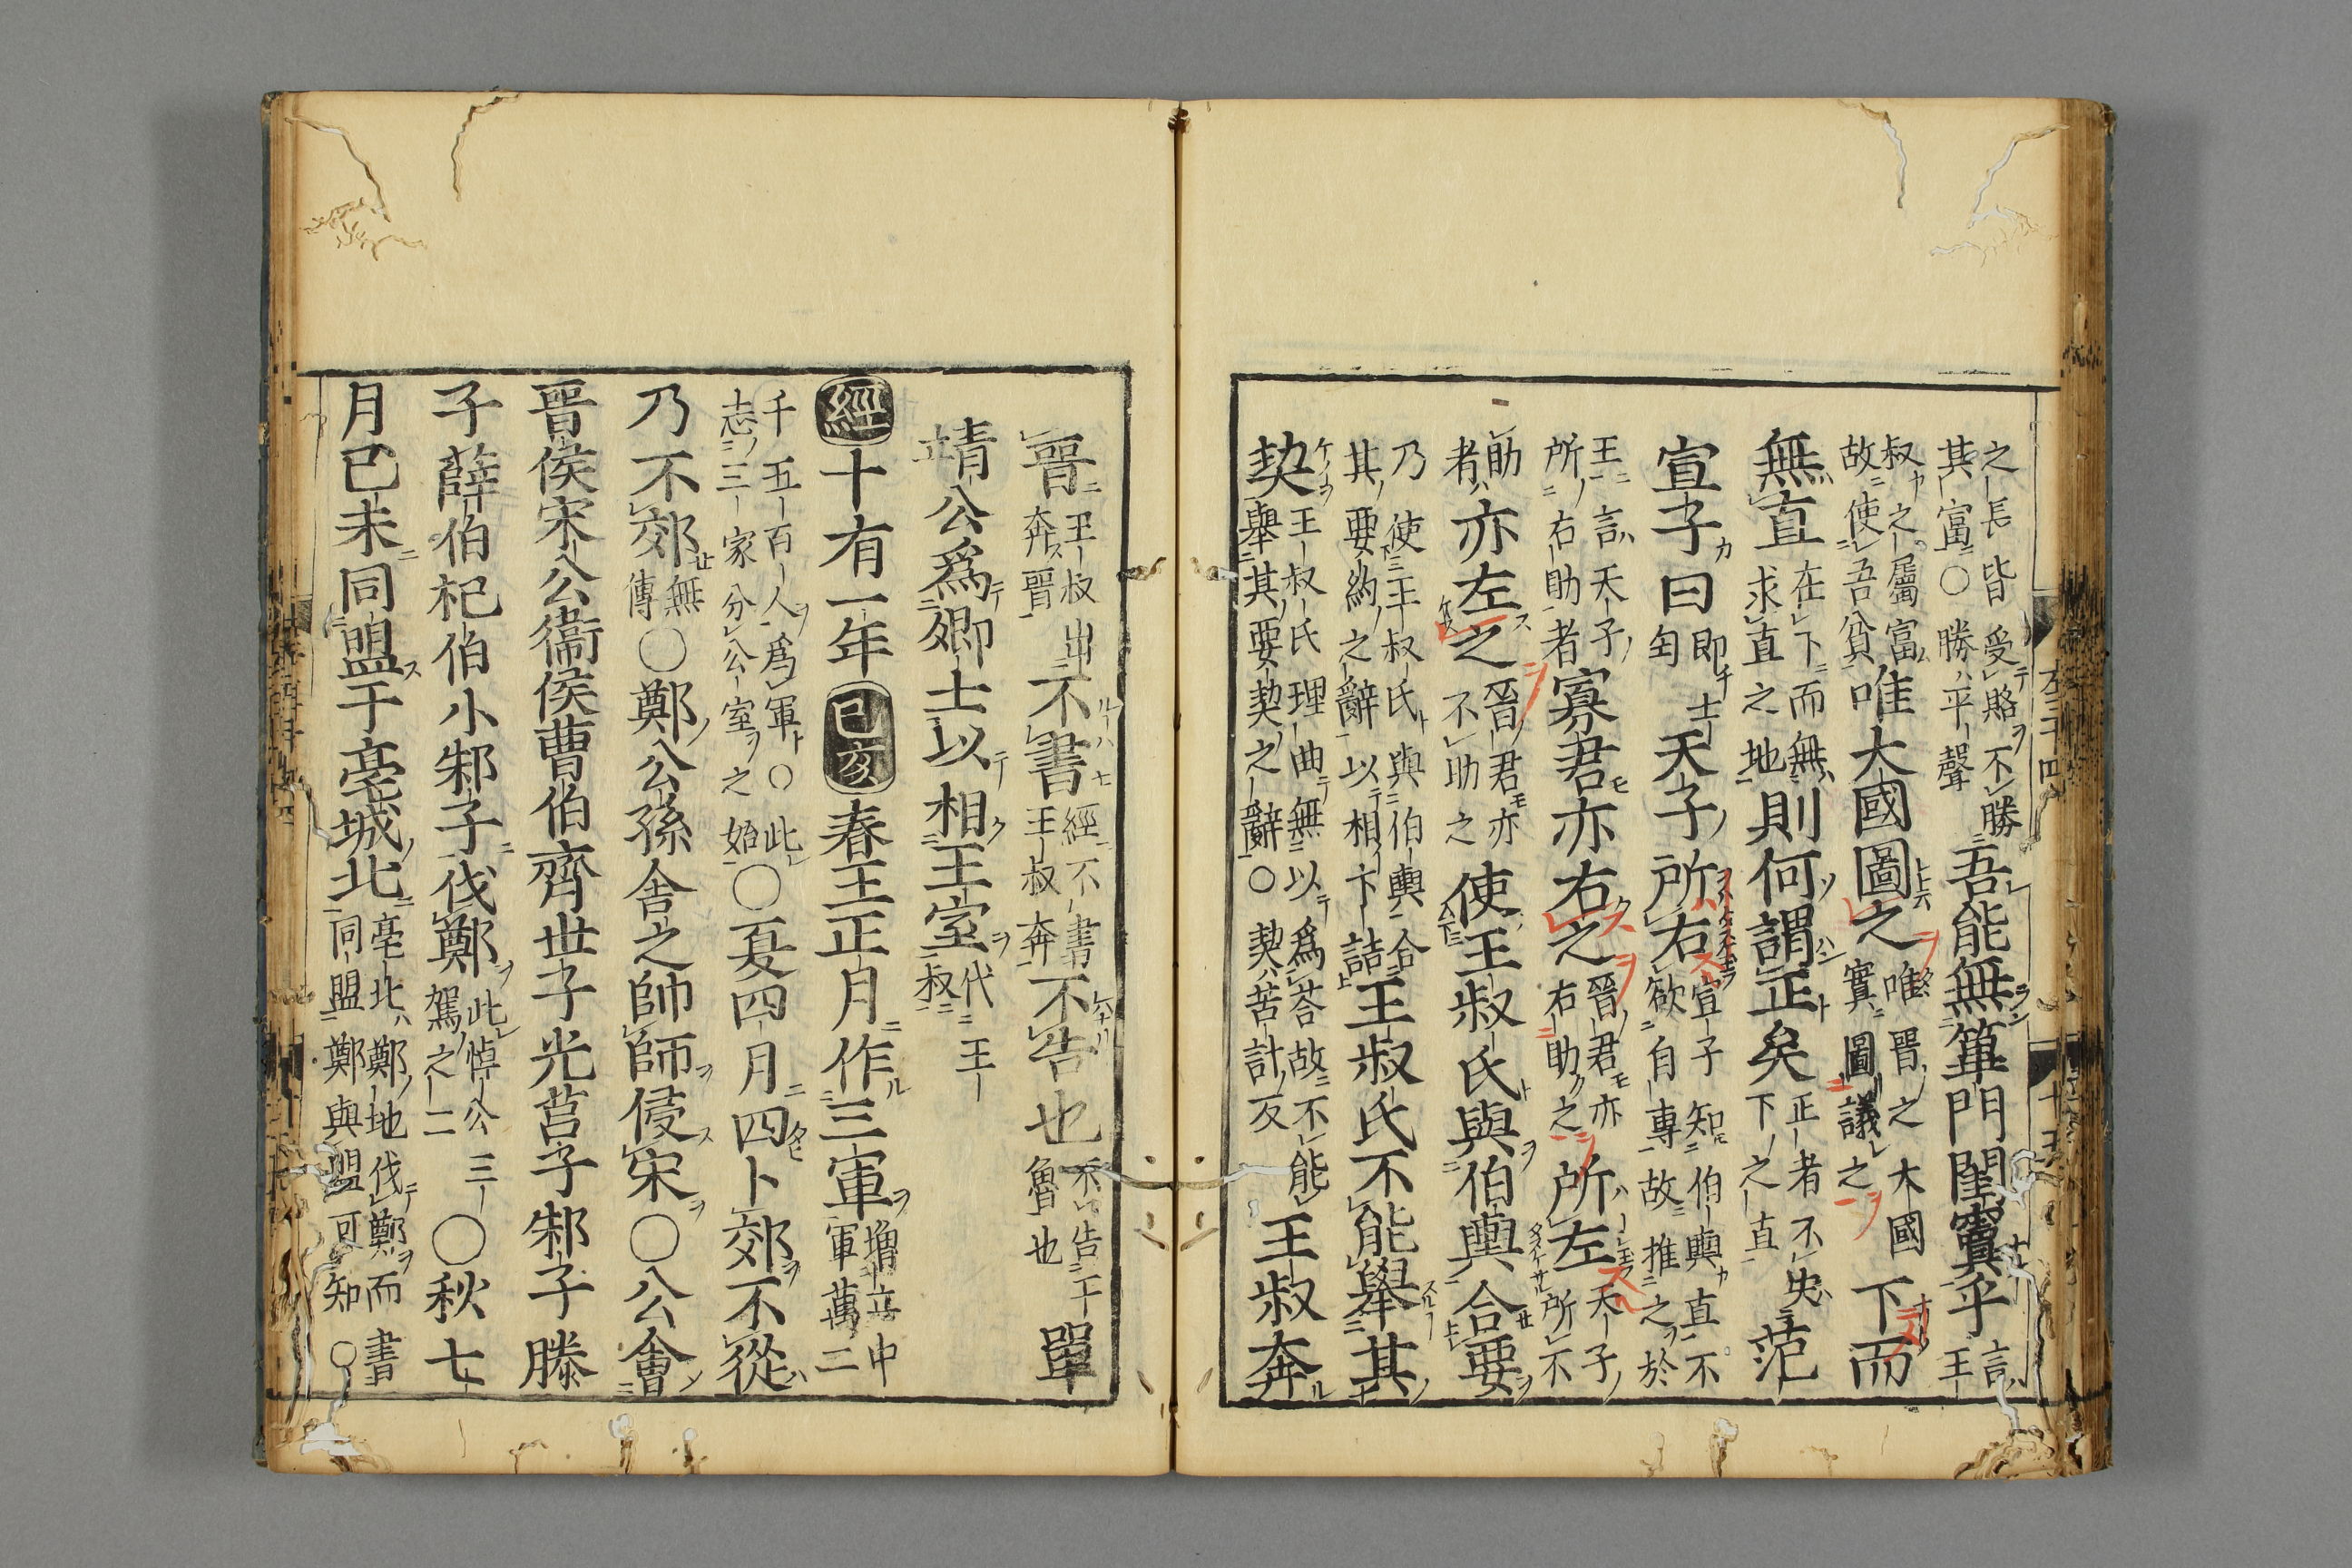 之長皆受賂不勝
其富〇勝平聲
吾能無篳門閨竇乎
言
王
叔之屬富
故使吾貧
唯大國圖之
唯晋之大國
實圖議之
下而
無直
在下而無
求直之地
則何謂正矣
正者不失
下之直
范
宣子曰
即士
匄
天子所右
宣子知伯輿直不
欲自專故推之於
王言天子
所右助者
寡君亦右之
晉君亦
右助之
所左
天子
所不
助
者
亦左之
晉君亦
不助之
使王叔氏與伯輿合要
乃使王叔氏與伯輿合
其要約之辭以相卞詰
王叔氏不能舉其
契
王叔氏理曲無以爲荅故不能
舉其要契之辭〇契苦計反
王叔奔
晋
王叔出
奔晋
不書
經不書
王叔奔
不告也
不告于
魯也
單
靖公爲卿士以相王室
代王
叔
經十有一年己亥春王正月作三軍
增立中
軍萬二
千五百人爲軍〇此
志三家分公室之始
〇夏四月四卜郊不從
乃不郊
無
傳
〇鄭公孫舍之帥師侵宋〇公會
晋侯宋公衞侯曹伯齊世子光莒子邾子滕
子薛伯杞伯小邾子伐鄭
此悼公三
駕之二
〇秋七
月己未同盟于亳城北
亳北鄭地伐鄭而書
同盟鄭與盟可知〇